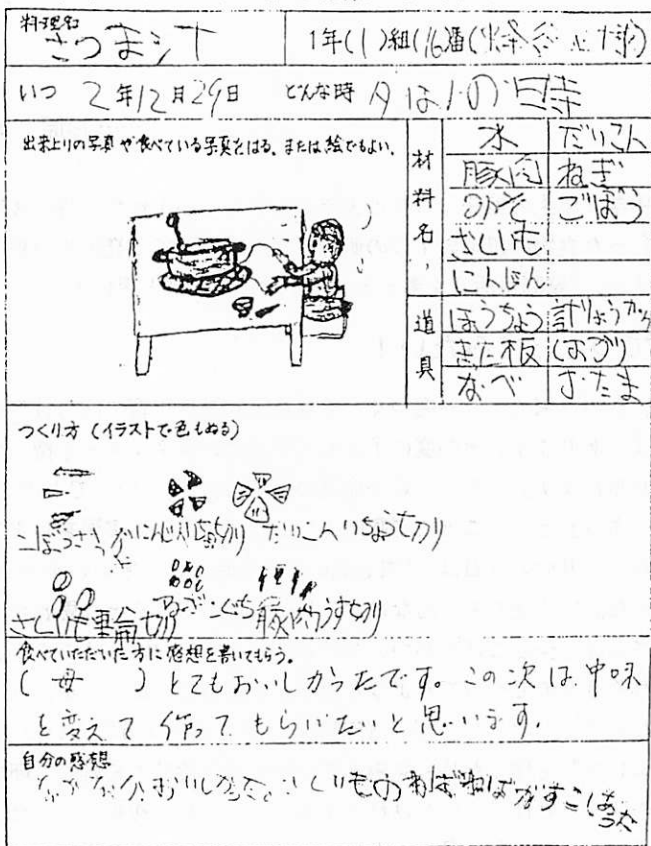 料理名
さつま汁
1年(1)組(16番(
いつ 2年12月29日 どんな時 夕はんの時
出来上りの写真や食べている写真をはる。または絵でもよい。
材料名
水 だいこん
豚肉 ねぎ
みそ ごぼう
さといも
にんじん
道具
ほうちょう 計りょうカップ
まな板
なべ おたま
つくり方(イラストで色もぬる)
ごぼうささがき にんじんいちょう切り だいこんいちょう切り
さといも輪切り ねぎこぐち 豚肉うす切り
食べていただいた方に感想を書いてもらう。
(母)とてもおいしかったです。この次は中味
を変えて作ってもらいたいと思います。
自分の感想
なかなかおいしかった。さといものねばねばがすこしあった